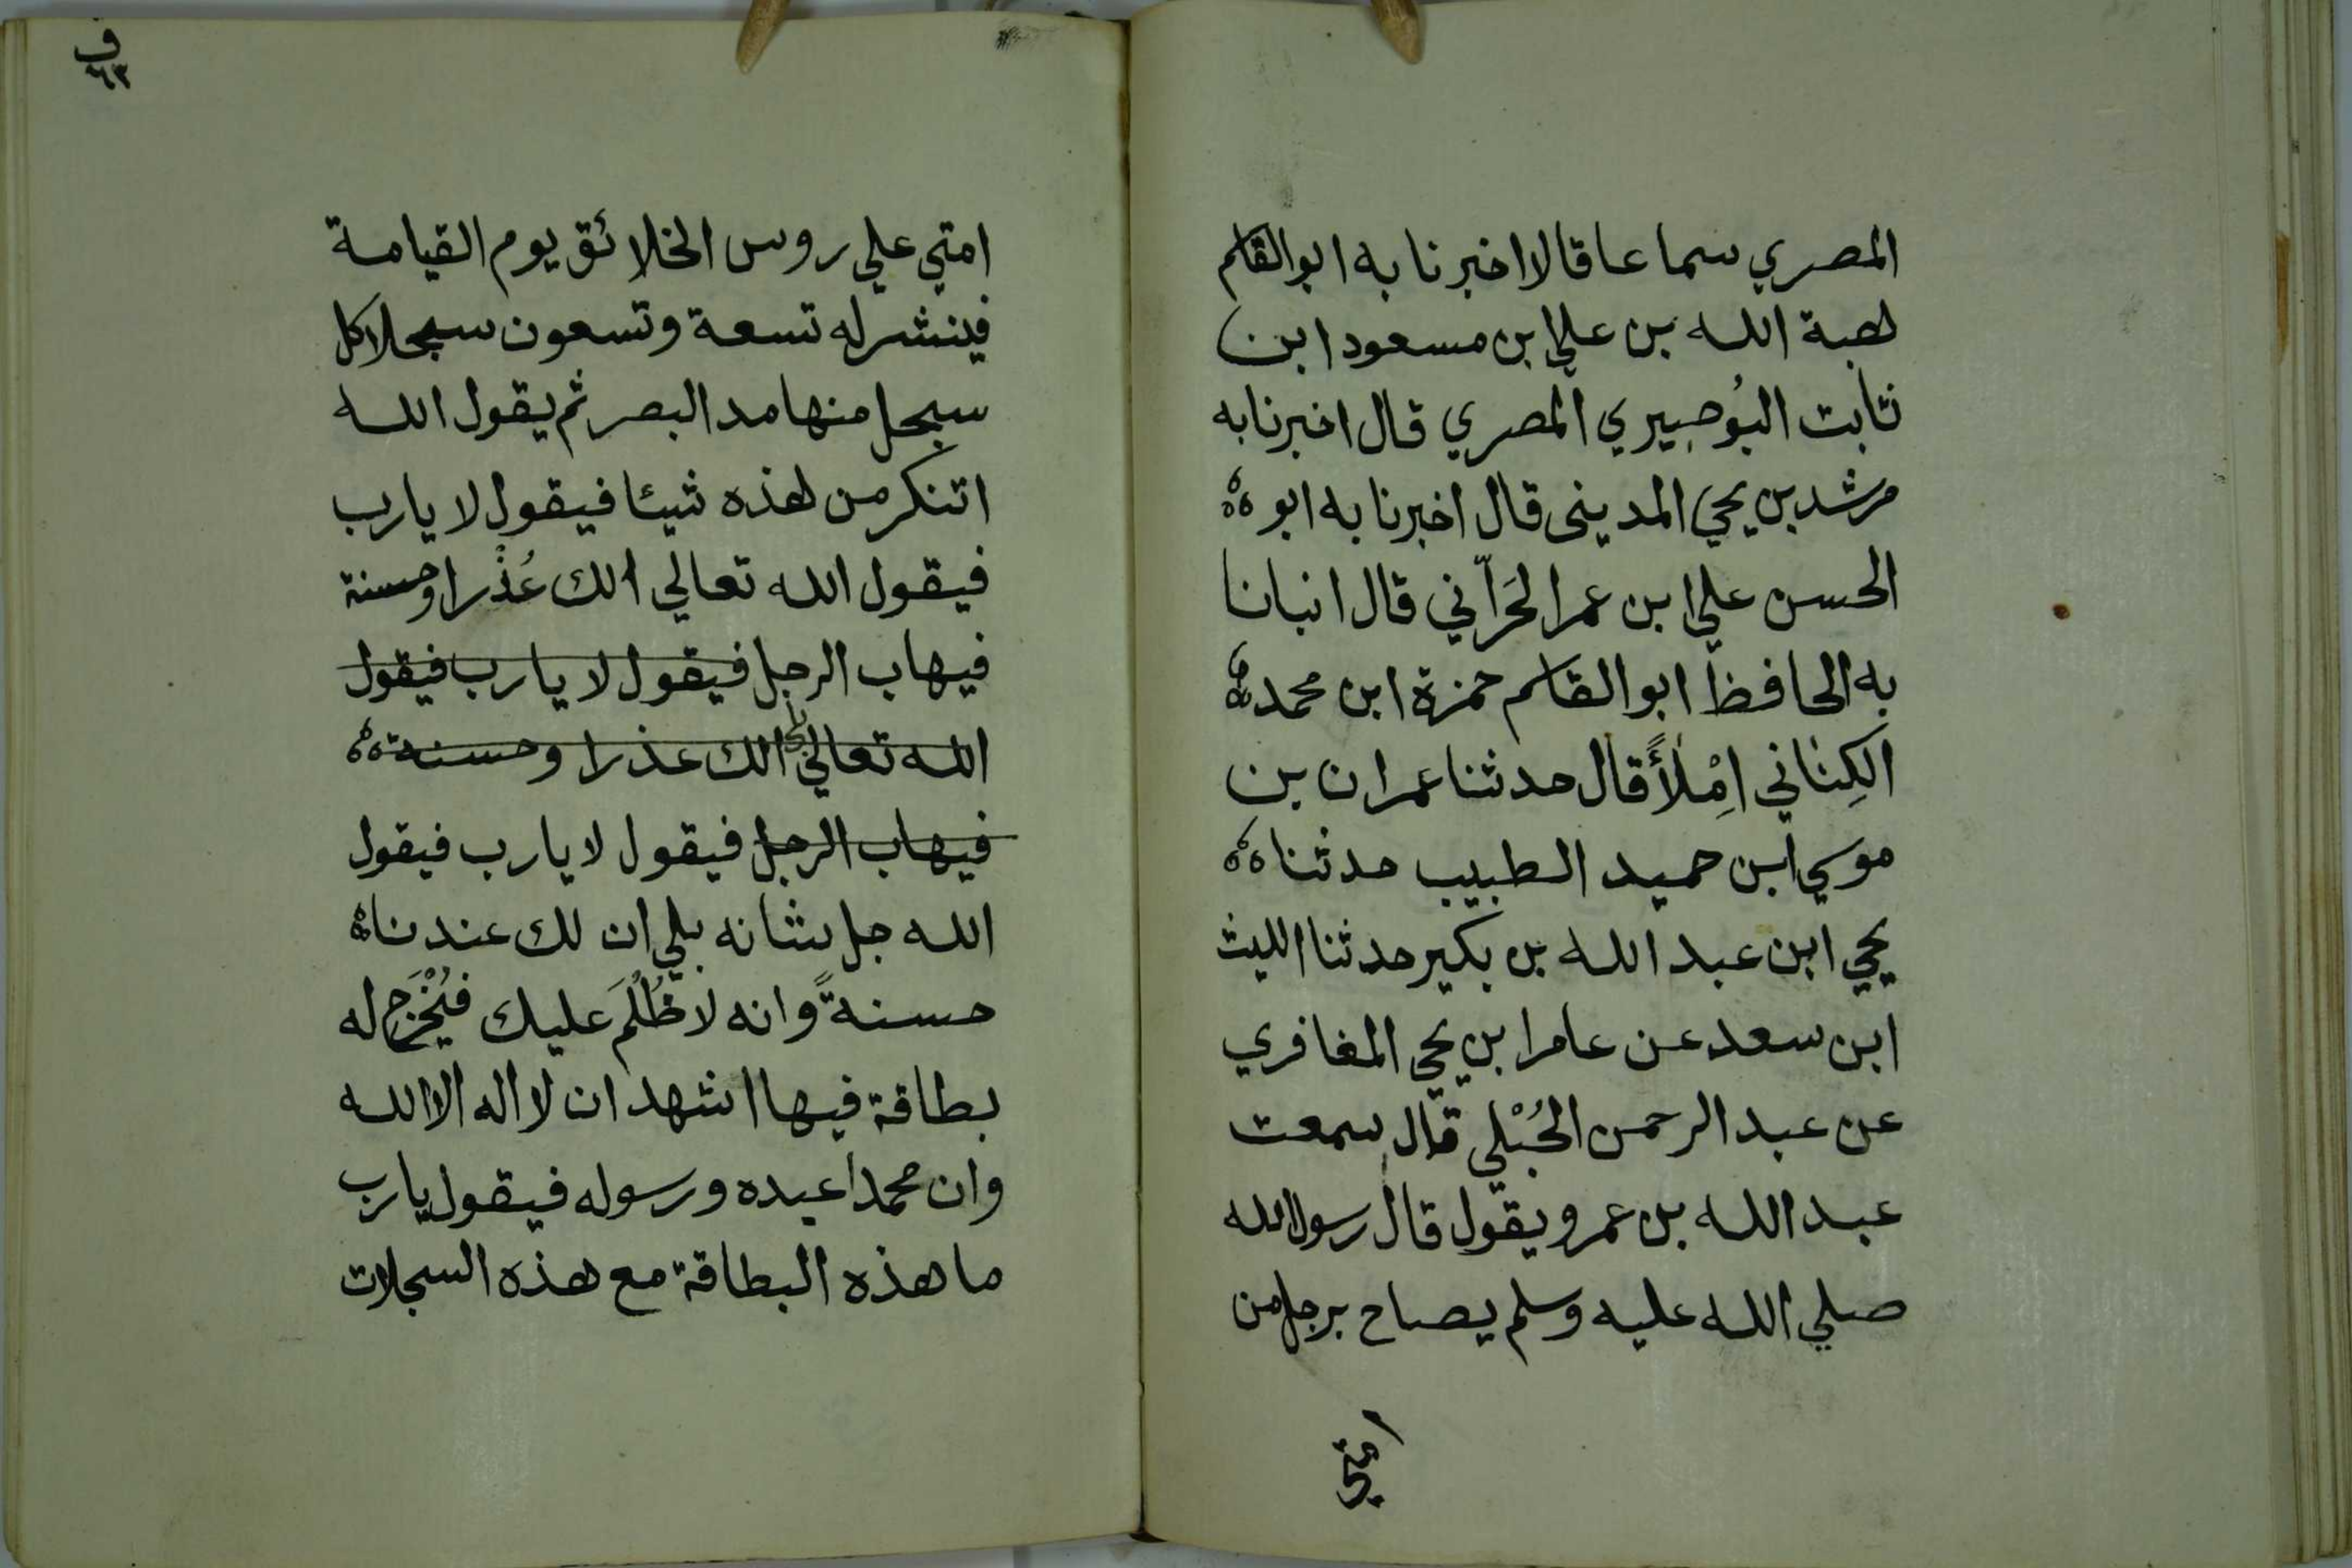 المصري سماعا قالا اخبرنا به ابو القاسم
هبة الله بن علي ابن مسعود ابن
ثابت البُوصِيري المصري قال اخبرنا به
مرشد بن يحيي المديني قال اخبرنا به ابو
الحسن علي ابن عمر الحَرّاني قال انبانا
به الحافظ ابو القاسم حمزة ابن محمد
الكِناني اِمْلأً قال حدثنا عمران بن
موسي ابن حميد الطبيب حدثنا
يحيي ابن عبد الله بن بكير حدثنا الليث
ابن سعد عن عامر ابن يحيي المغافري
عن عبد الرحمن الحُبْلي قال سمعت
عبد الله بن عمرو يقول قال رسول الله
صلي الله عليه وسلم يصاح برجل من
امتي
ف
٦٣
امتي علي روس الخلائق يوم القيامة
فينشر له تسعة وتسعون سجلا كل
سجل منها مد البصر ثم يقول الله
اتنكر من هذه شيئا فيقول لا يارب
فيقول الله تعالي الك عُذْرا وحسنة
فيهاب الرجل فيقول لا يارب فيقول
الله تعالي الك عذرا وحسنة
فيهاب الرجل فيقول لا يارب فيقول
الله جل شانه بلي ان لك عندنا
حسنةً وانه لا ظُلْمَ عليك فيُخْرَج له
بطاقة فيها اشهد ان لا اله الا الله
وان محمدا عبده ورسوله فيقول يارب
ما هذه البطاقة مع هذه السجلات